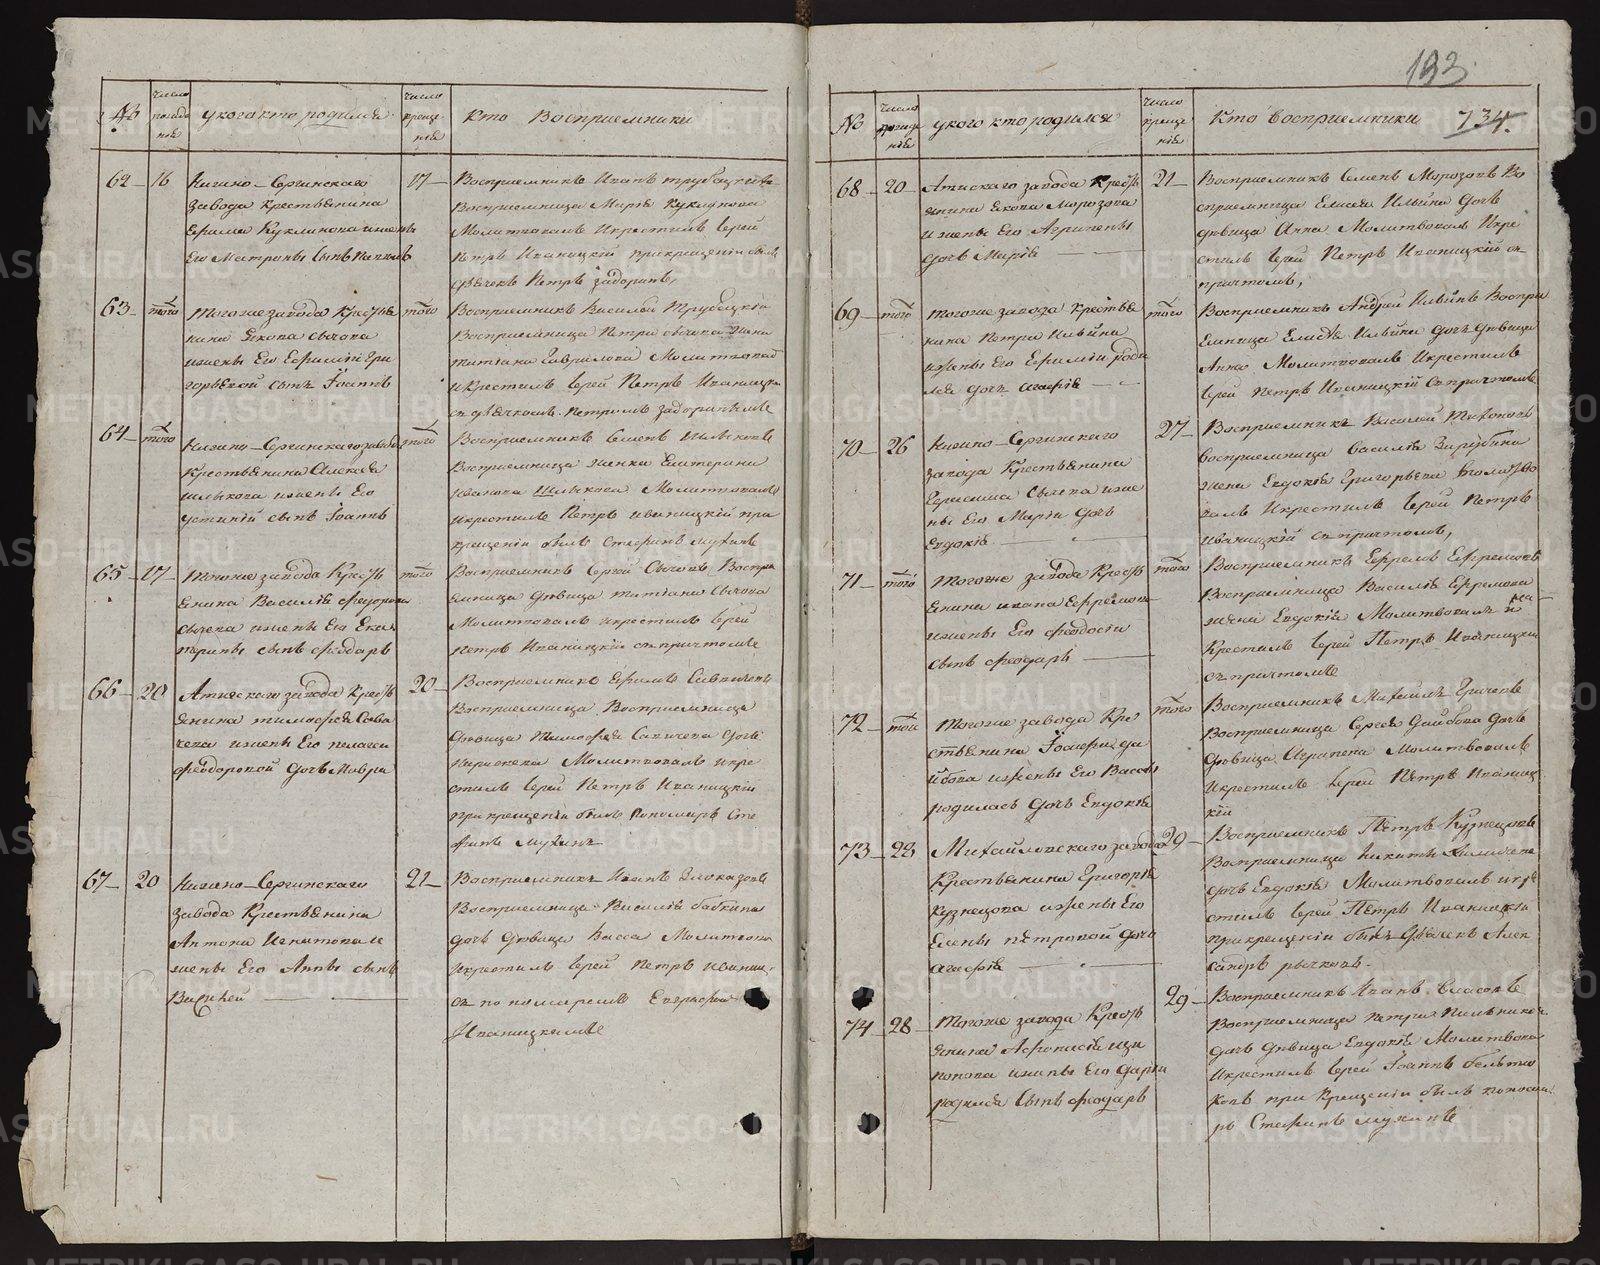 №
число рожде
ния
у кого кто родился
число
креще
ния
Кто Восприемники
62 16 Нижно-Сергинскаго
завода крестьянина
Ефима Куклинова и жены
Его Матроны сынъ
17 Восприемникъ Иванъ
Восприемница Марья Куклинова
Молитвовалъ и крестилъ Іерей
Петръ Иваницкій при крещеніи былъ
дьячекъ Петръ Задоринъ,
63 того Того же завода Крестья
нина Якова Сычова
и жены Его Ефиміи Гри
горьевой сынъ Іоаннъ
того Восприемникъ Василей Трубецкій
Восприемница Петра Сычова жена
Татіана Гаврилова Молитвовал
и крестилъ Іерей Петръ Иваницкій
съ дьячкомъ Петромъ Задоринымъ
64 того Нижно-Сергинскаго завода
Крестьянина Алексея
и жены Его
Устиніи сынъ Іоаннъ
того Восприемникъ Семенъ
Восприемница женка Екатерина
Иванова Молитвовалъ
и крестилъ Петръ Иваницкій при
крещеніи былъ Стефанъ Мухинъ
65 17 Того же завода Кресть
янина Василья Федорова
Сычева и жены Его Ека
терины сынъ Феодоръ
того Восприемникъ Сергей Сычовъ Воспри
емница девица Татіана Сычова
Молитвовалъ и крестилъ Іерей
Петръ Иваницкій съ причтомъ
66 20 Атигскаго завода Кресть
янина Тимофея Сави
чева и жены Его Пелагеи
Феодоровой дочь Мавра
20 Восприемникъ Ефимъ Савичевъ
Восприемница Восприемница
девица Тимофея Савичева дочь
Параскева Молитвовалъ и кре
стилъ Іерей Петръ Иваницкій
при крещеніи былъ Пономарь Сте
фанъ Мухинъ
67 20 Нижно-Сергинскаго
завода Крестьянина
Антона Игнатова и
жены Его Анны сынъ
Василей
21 Восприемникъ Иванъ
Восприемница Василья Бабкина
дочь девица Васса Молитвова
и крестилъ Іерей Петръ Иваниц
съ пономаремъ
Иваницкимъ
193
734.
№
число
рожде
нія
у кого кто родился
число
креще
нія
Кто Восприемники
68 20 Атигскаго завода Кресть
янина Якова Морозова
и жены Его Агрипены
дочь Марія
21 Восприемникъ Семенъ Морозовъ Во
сприемница Елисея Ильина дочь
девица Анна Молитвовалъ и кре
стилъ Іерей Петръ Иваницкій съ
причтомъ,
69 того Того же завода Крестья
нина Петра Ильина
и жены Его Ефиміи роди
лся дочь Агафія
того Восприемникъ Андрей Ильинъ Воспри
емница Елисея Ильина дочь девица
Анна Молитвовалъ и крестилъ
Іерей Петръ Иваницкій съ причтомъ
70 26 Нижно-Сергинскаго
завода Крестьянина
Герасима Сычева и же
ны Его Марьи дочь
Евдокія
27 Восприемникъ Василей Тихоновъ
Восприемница Василья Зарубина
жена Евдокія Григорьева Молитво
валъ и крестилъ Іерей Петръ
Иваницкій съ причтомъ,
71 того Того же завода Кресть
янина Ивана Ефремова
и жены Его Феодосіи
сынъ Феодоръ
того Восприемникъ Ефремъ Ефремовъ
Восприемница Василья Ефремова
жена Евдокія Молитвовалъ и
Крестилъ Іерей Петръ Иваницкій
съ причтомъ
72 той Того же завода Кре
стьянина Іосифа Да
йбова и жены Его Вассы
родилась дочь Евдокія
того Восприемникъ Михаилъ
Восприемница Сергея Дайбова дочь
девица Агрипена Молитвовалъ
и крестилъ Іерей Петръ Иваниц
кій
73 28 Михайловскаго завода
Крестьянина Григорья
Кузнецова и жены Его
Елены Петровой дочь
Агафія
29 Восприемникъ Петръ Кузнецовъ
Восприемница Никиты
дочь Евдокія Молитвовалъ и кре
стилъ Іерей Петръ Иваницкій
при крещеніи былъ дьячекъ Алек
сандръ Рычковъ.
74 28 Того же завода Кресть
янина Афонасія Ши
попова и жены Его Дарьи
родился сынъ Феодоръ
29 Восприемникъ Иванъ Власовъ
Восприемница Петра
дочь девица Евдокія Молитвова
и крестилъ Іерей Іоаннъ Бельтю
ковъ при крещеніи былъ понома
рь Стефанъ Мухинъ